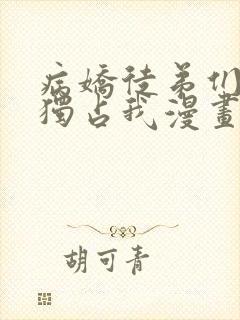 病嬌徒弟們
獨占我漫畫
胡可青